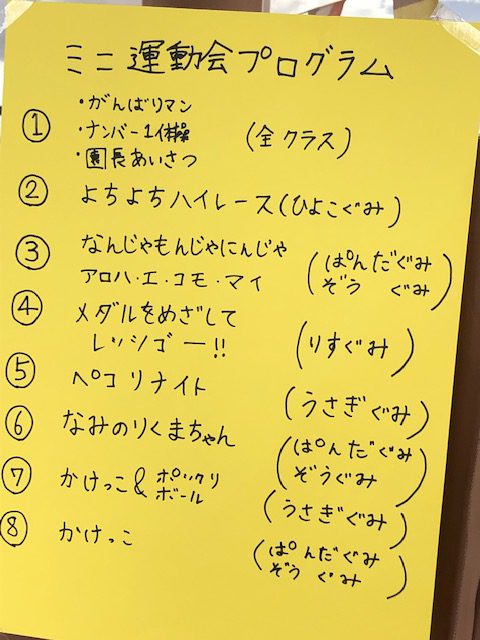 ミニ運動会プログラム
① ・がんばりマン
・ナンバー1体操 (全クラス)
・園長あいさつ
② よちよちハイレース(ひよこぐみ)
③ なんじゃもんじゃにんじゃ (ぱんだぐみ
アロハ・エ・コモ・マイ ぞう ぐみ)
④ メダルをめざして
レッツゴー!! (りすぐみ)
⑤ ペコリナイト (うさぎぐみ)
⑥ なみのりくまちゃん (ぱんだぐみ
ぞうぐみ)
⑦ かけっこ&ポックリ
ボール (うさぎぐみ)
⑧ かけっこ (ぱんだぐみ
ぞう ぐみ)